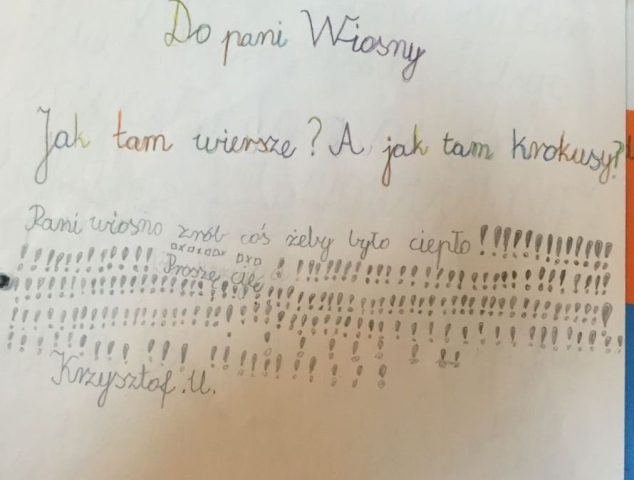 Do pani Wiosny
Jak tam wiersze? A jak tam krokusy?
Pani wiosno zrób coś żeby było ciepło!!!!!!!!!!!!!
!!!!!!!!!! Proszę cię ! !!!!!!!!!!!!!!!!!!!!!!!!
!!!!!!!!!!!!!!!!!!!!!!!!!!!!!!!!!!!!!!!!!!!!!!!!
!!!!!!!!!!!!!!!!!!!!!!!!!!!!!!!!!!!!!!!!
!!!!!!!!!!!!!!!!!!!!!!!!!
Krzysztof.U.